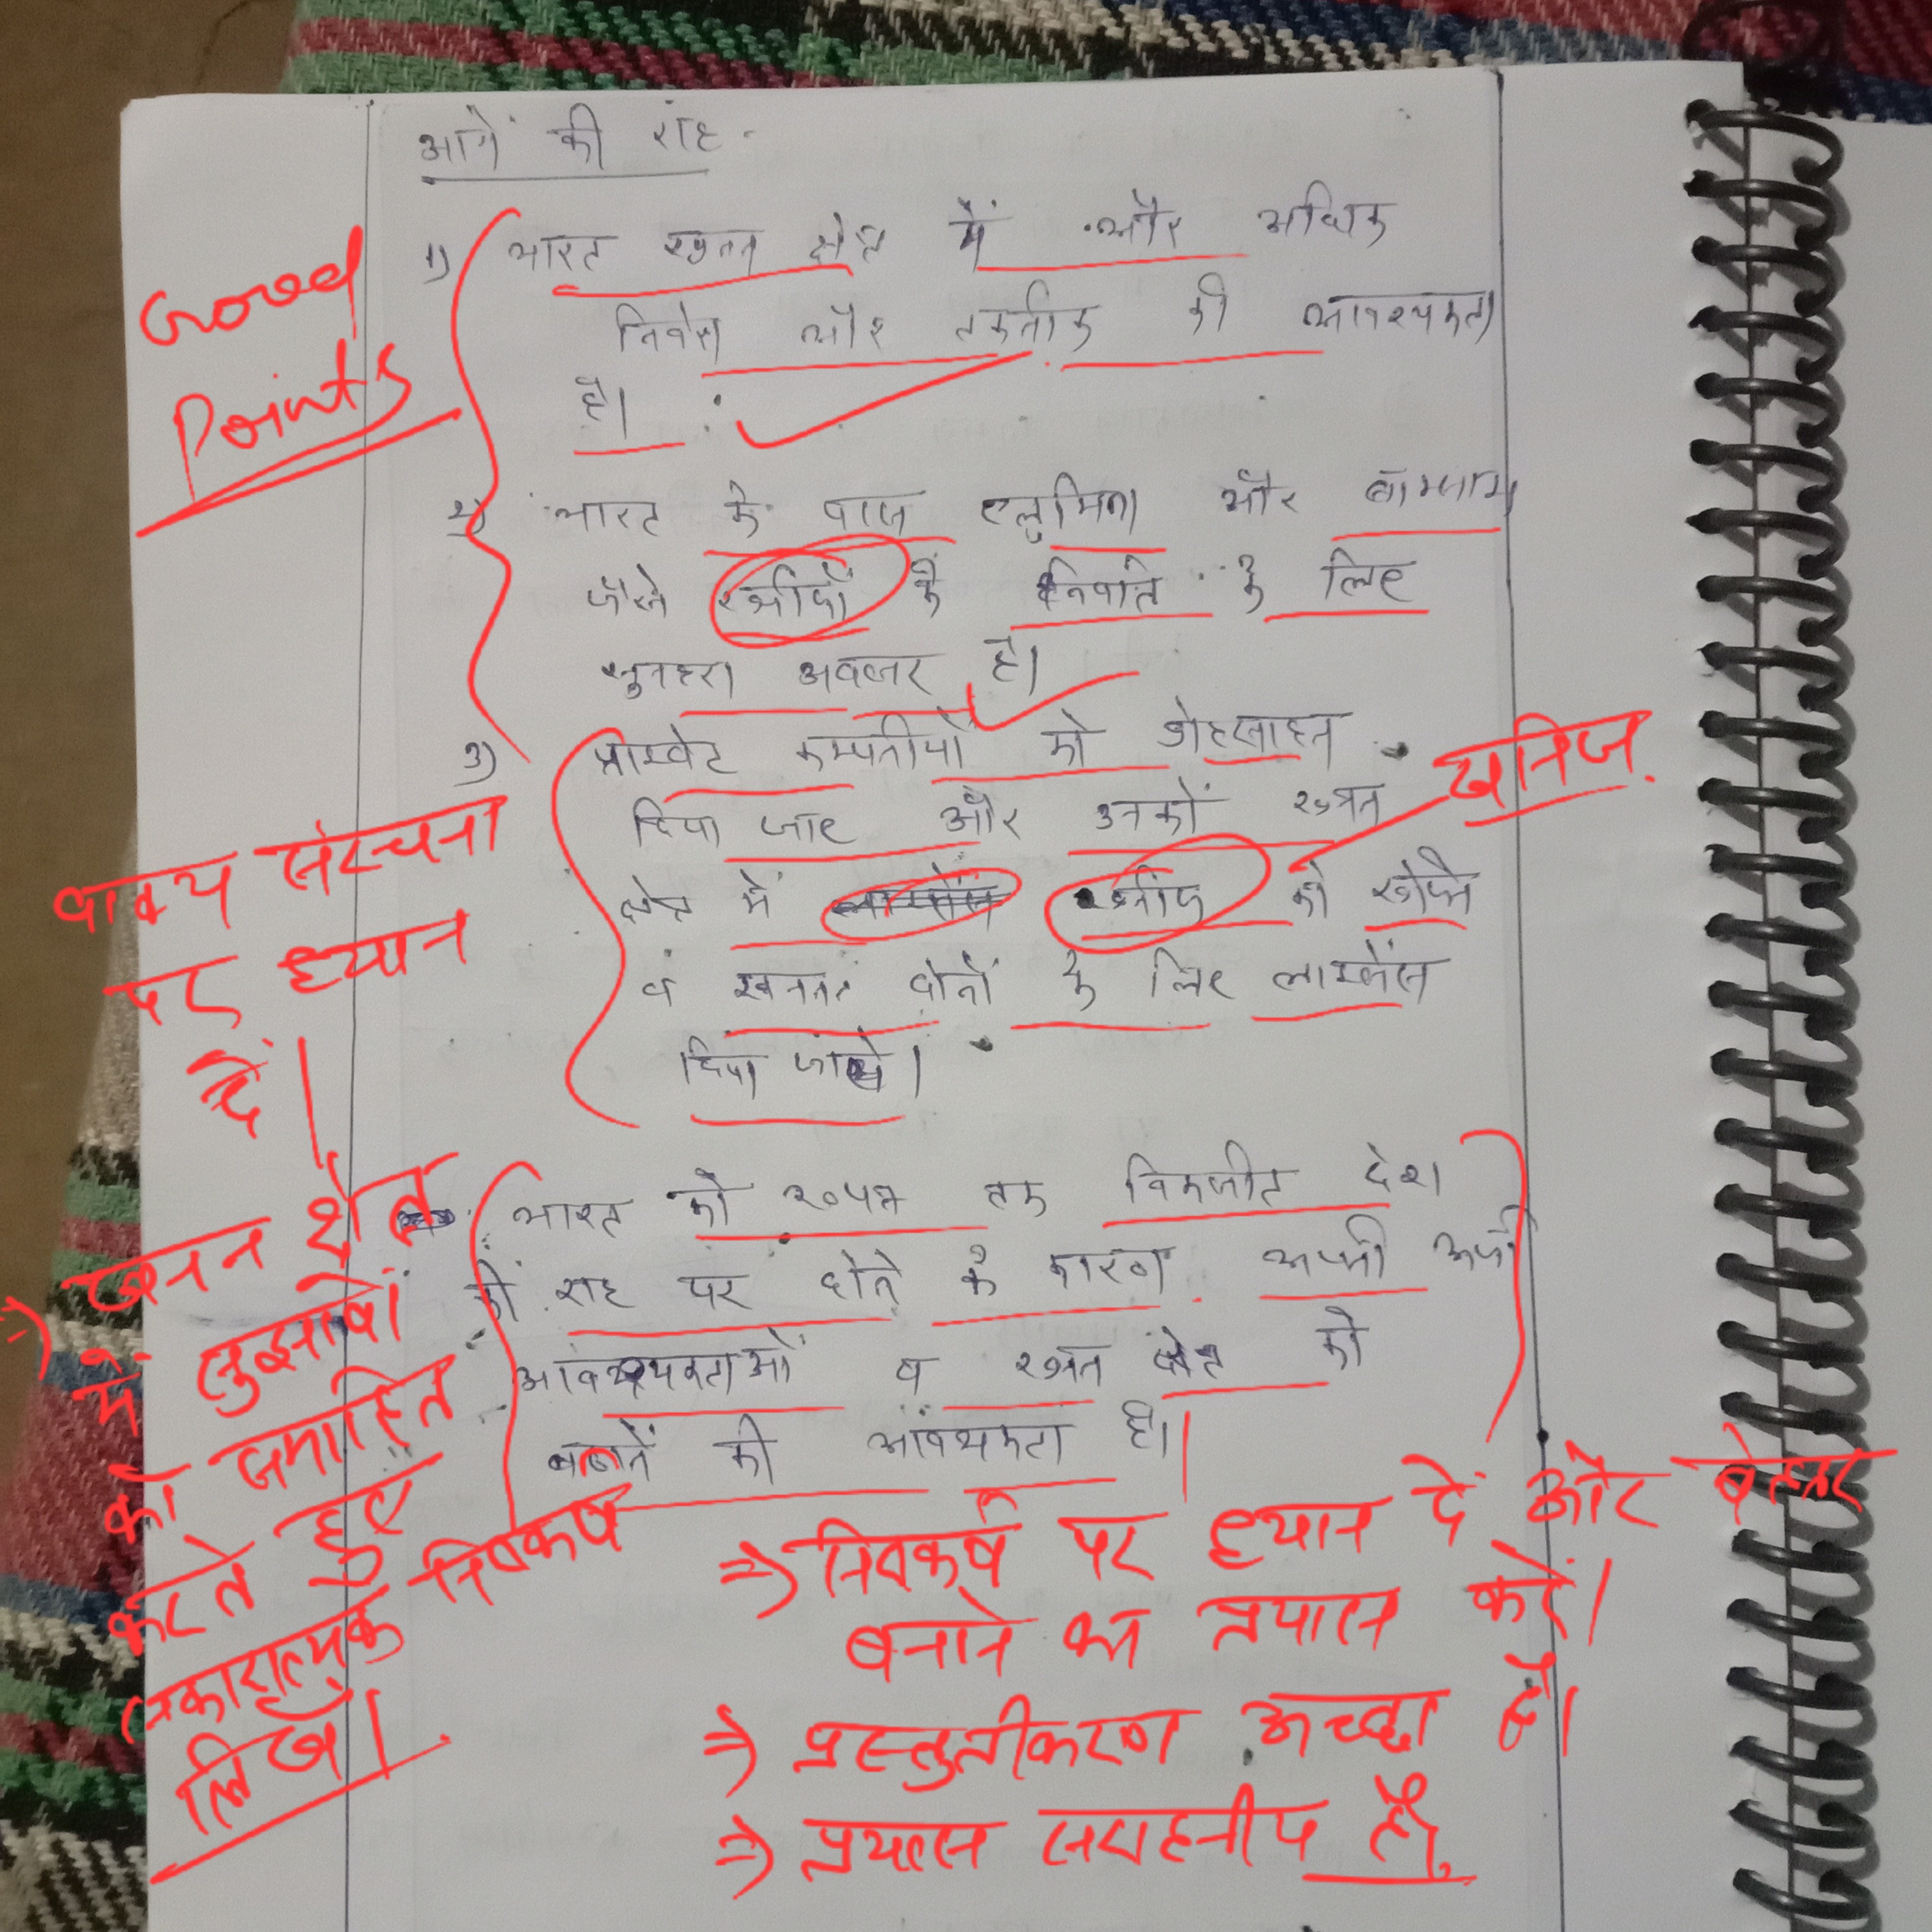 आगे की राह -
Good
Points
1) भारत खनन क्षेत्र में और अधिक
निवेश और तकनीक की आवश्यकता
है।
2) भारत के पास एलुमिना और
जैसे खनीजों के निर्यात के लिए
सुनहरा अवसर है।
3) प्राइवेट कम्पनीयों को प्रोहत्साहन
दिया जाए और उनकों खनन
खनिज
क्षेत्र में खनीज को खोजने
व खनन दोनों के लिए लाइसेंस
दिया जाये।
वाक्य संरचना
पर ध्यान
दें।
भारत को २०४७ तक विकसीत देश
की राह पर होने के कारण अपनी ऊर्जा
आवश्यकताओं व खनन क्षेत्र को
की आवश्यकता है।
=) खनन क्षेत्र
में सुझावों
को समाहित
करते हुए
सकारात्मक निष्कर्ष
लिखें।
=) निष्कर्ष पर ध्यान दें और बेहतर
बनाने का प्रयास करें।
=) प्रस्तुतीकरण अच्छा है।
=) प्रयास सराहनीय है।